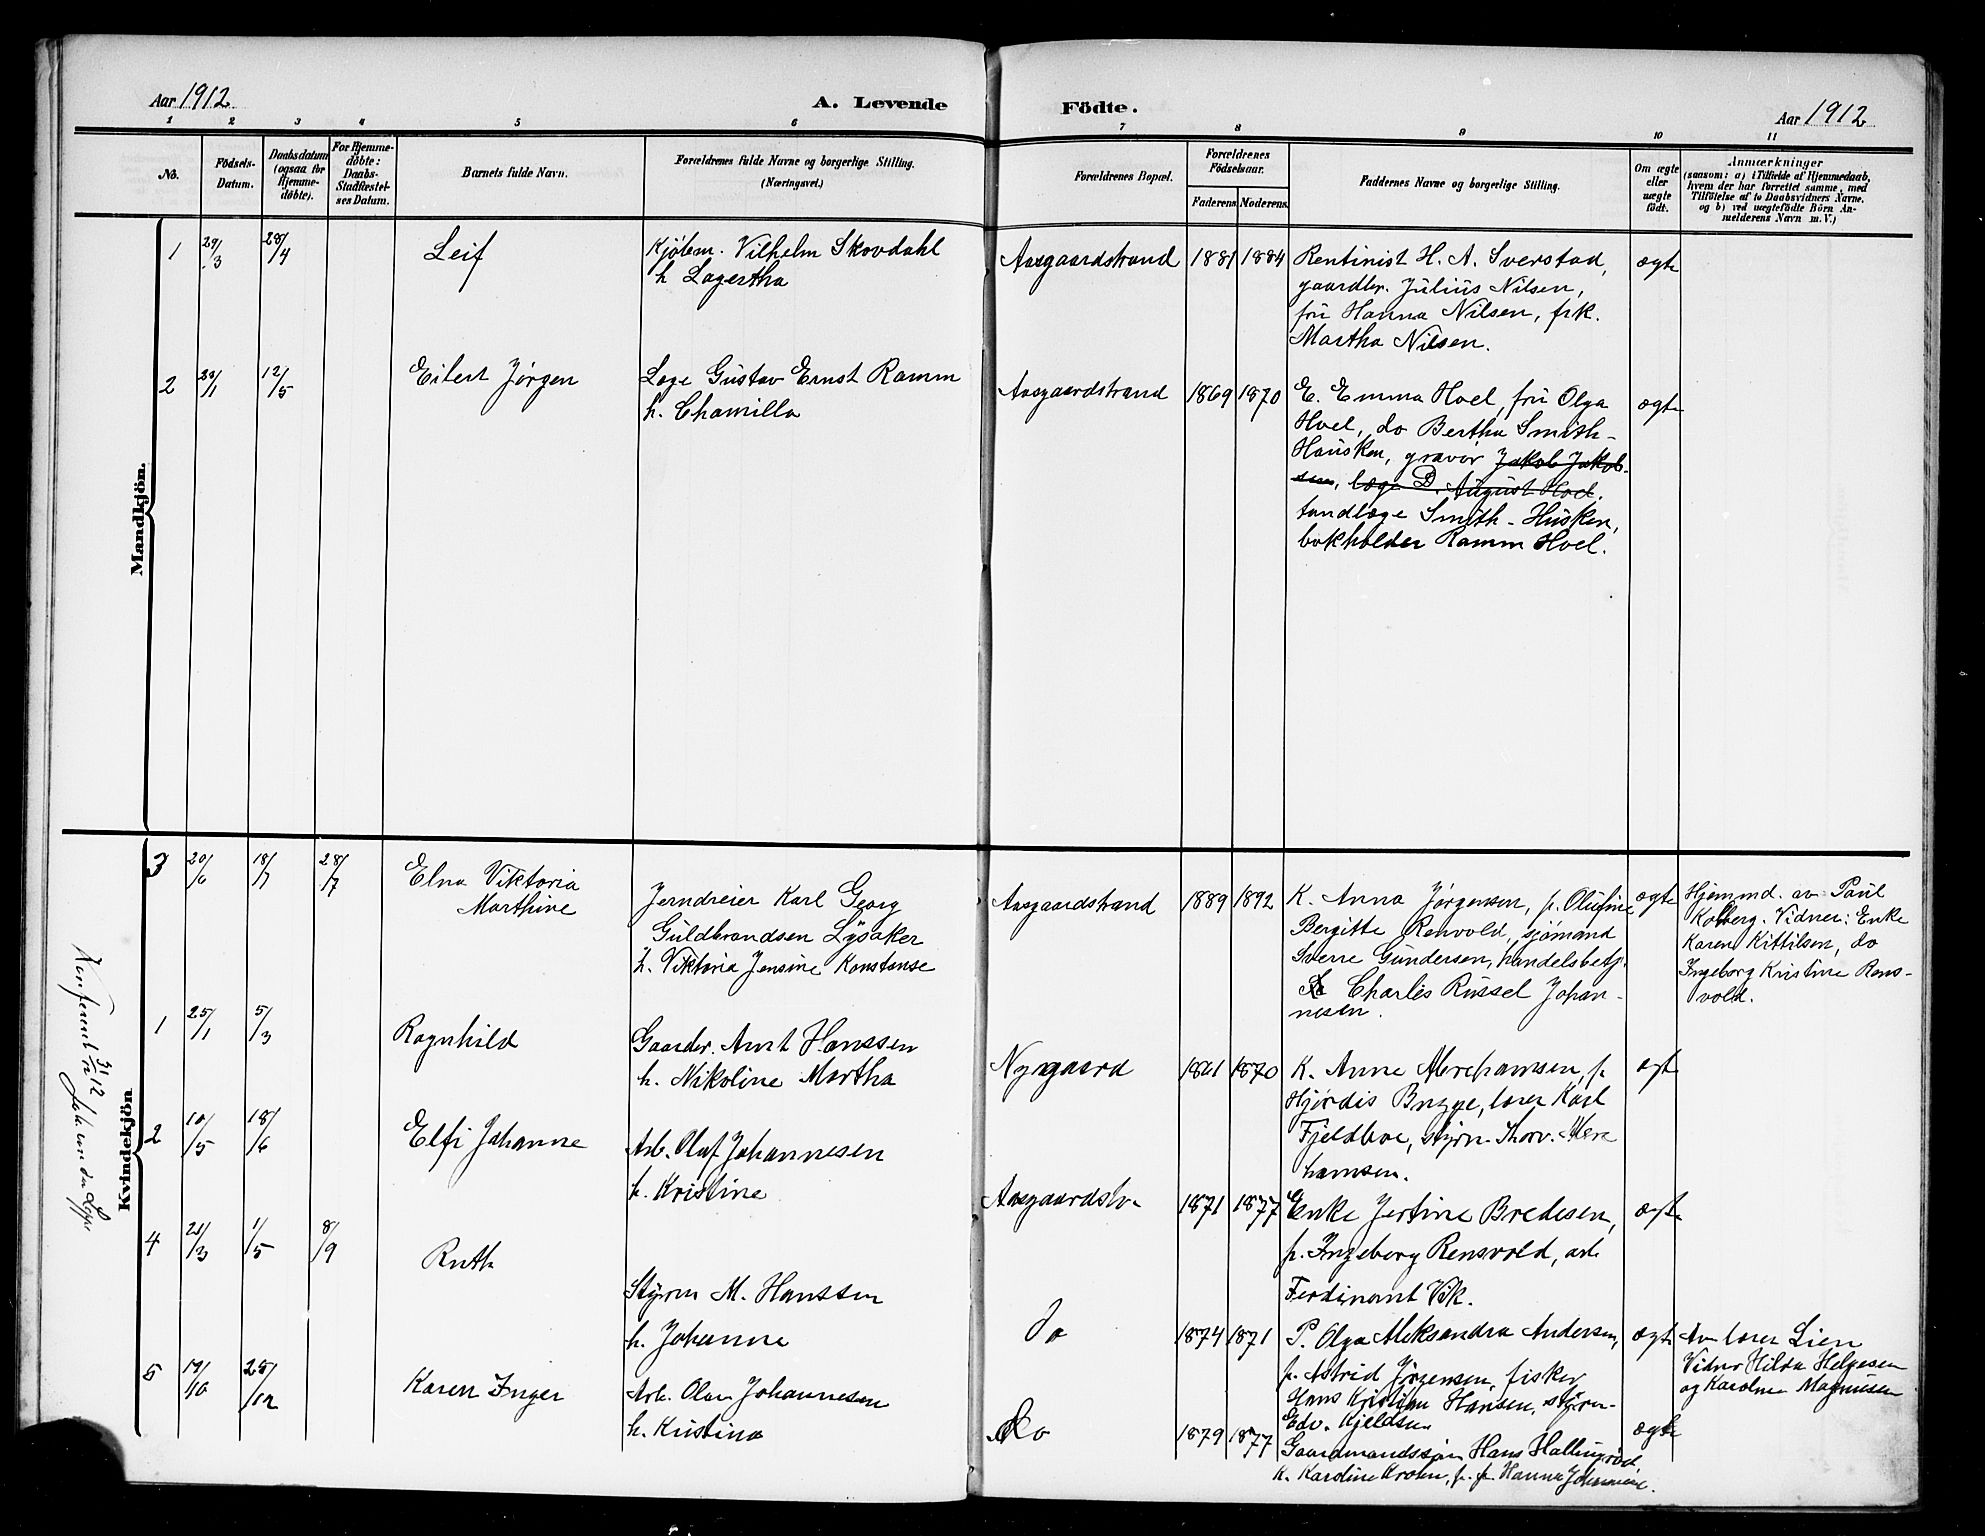 Aar 1912
A. Levende
Födte.
Aar 1912
1 2 3 4 5 6 7 8 9 10 11
No.
Födsels-
Datum.
Daabsdatum
(ogsaa for
Hjemme-
döbte).
For Hjemme-
döbte:
Daabs-
Stadfæstel-
ses Datum.
Barnets fulde Navn.
Forældrenes fulde Navne og borgerlige Stilling.
(Næringsvei.)
Forældrenes Bopæl.
Forældrenes
Födselsaar.
Faderens
Moderens
Faddernes Navne og borgerlige Stilling.
Om ægte
eller
uægte
født.
Anmærkninger
(saasom: a) i Tilfælde af Hjemmedaab,
hvem der har forrettet samme, med
Tilföielse af to Daabsvidners Navne,
og b) ved uægtefödte Börn An-
melderens Navn m. V.)
Mandkjön.
1 29/3 28/4 Leif
Kjøbm. Vilhelm Skovdahl
h Lagertha
Aasgaardstrand 1881 1884
Rentinist H. A. Sverstad,
gaardbr. Julius Nilsen,
fru Hanna Nilsen, frk.
Martha Nilsen.
ægte
2 12/5 Eilert Jørgen
Læge Gustav Ernst Ramm
h. Chamilla
Aasgaardstrand 1869 1870
E. Emma Hoel, fru Olga
Hoel, do Bertha Smith-
Hausken, gravør Jakob Jakob-
sen, læge D. August Hoel.
tandlæge Smith-Husken,
bokholder Ramm Hoel.
ægte
Kvindekjön
3 20/6 18/7 28/7 Elna Viktoria
Marthine
Jerndreier Karl Georg
Guldbrandsen Lysaker
h. Viktoria Jensine Konstanse
Aasgaardstrand 1889 1892
K. Anna Jørgensen, p. Olufine
Bergitte Renvold, sjømand
Sverre Gundersen, handelsbetj.
Charles Russel Johan-
nesen.
ægte
Hjemmd. av Paul
Kolberg. Vidner: Enke
Karen Kittilsen, do
Ingeborg Kristine Rens-
vold.
1 25/1 5/3 Ragnhild
Gaardbr. Arnt Hanssen
h. Nikoline Martha
Nygaard 1870
K. Anne Abrahamsen, p.
Hjørdis Brygge, lærer Karl
Fjeldboe, styrm. Thorv. Abra
hamsen.
ægt
2 10/5 18/6 Elfi Johanne
Arb. Olaf Johannesen
h. Kristine
Aasgaardstr. 1871 1877
Enke Jertine Bredesen,
p. Ingeborg Rensvold, arb
Ferdinant Vik.
ægte
4 21/3 1/5 8/9 Ruth
Styrm M. Hanssen
h. Johanne
do 1874 1871
P. Olga Aleksandra Andersen,
p. Astrid Jørgensen, fisker
Hans Kristian Hansen, styrm-
Edv. Kjeldsen
ægte
Av lærer Lien
Vidner Hilda Helgesen
og Karoline Magnusen
5 19/10 28/12 Karen Inger
Arb. Olav Johannesen
h. Kristine
do 1879 1877
Gaardmandssøn Hans Hallingrød,
K. Karoline
ægte
Konferert 31/12 12